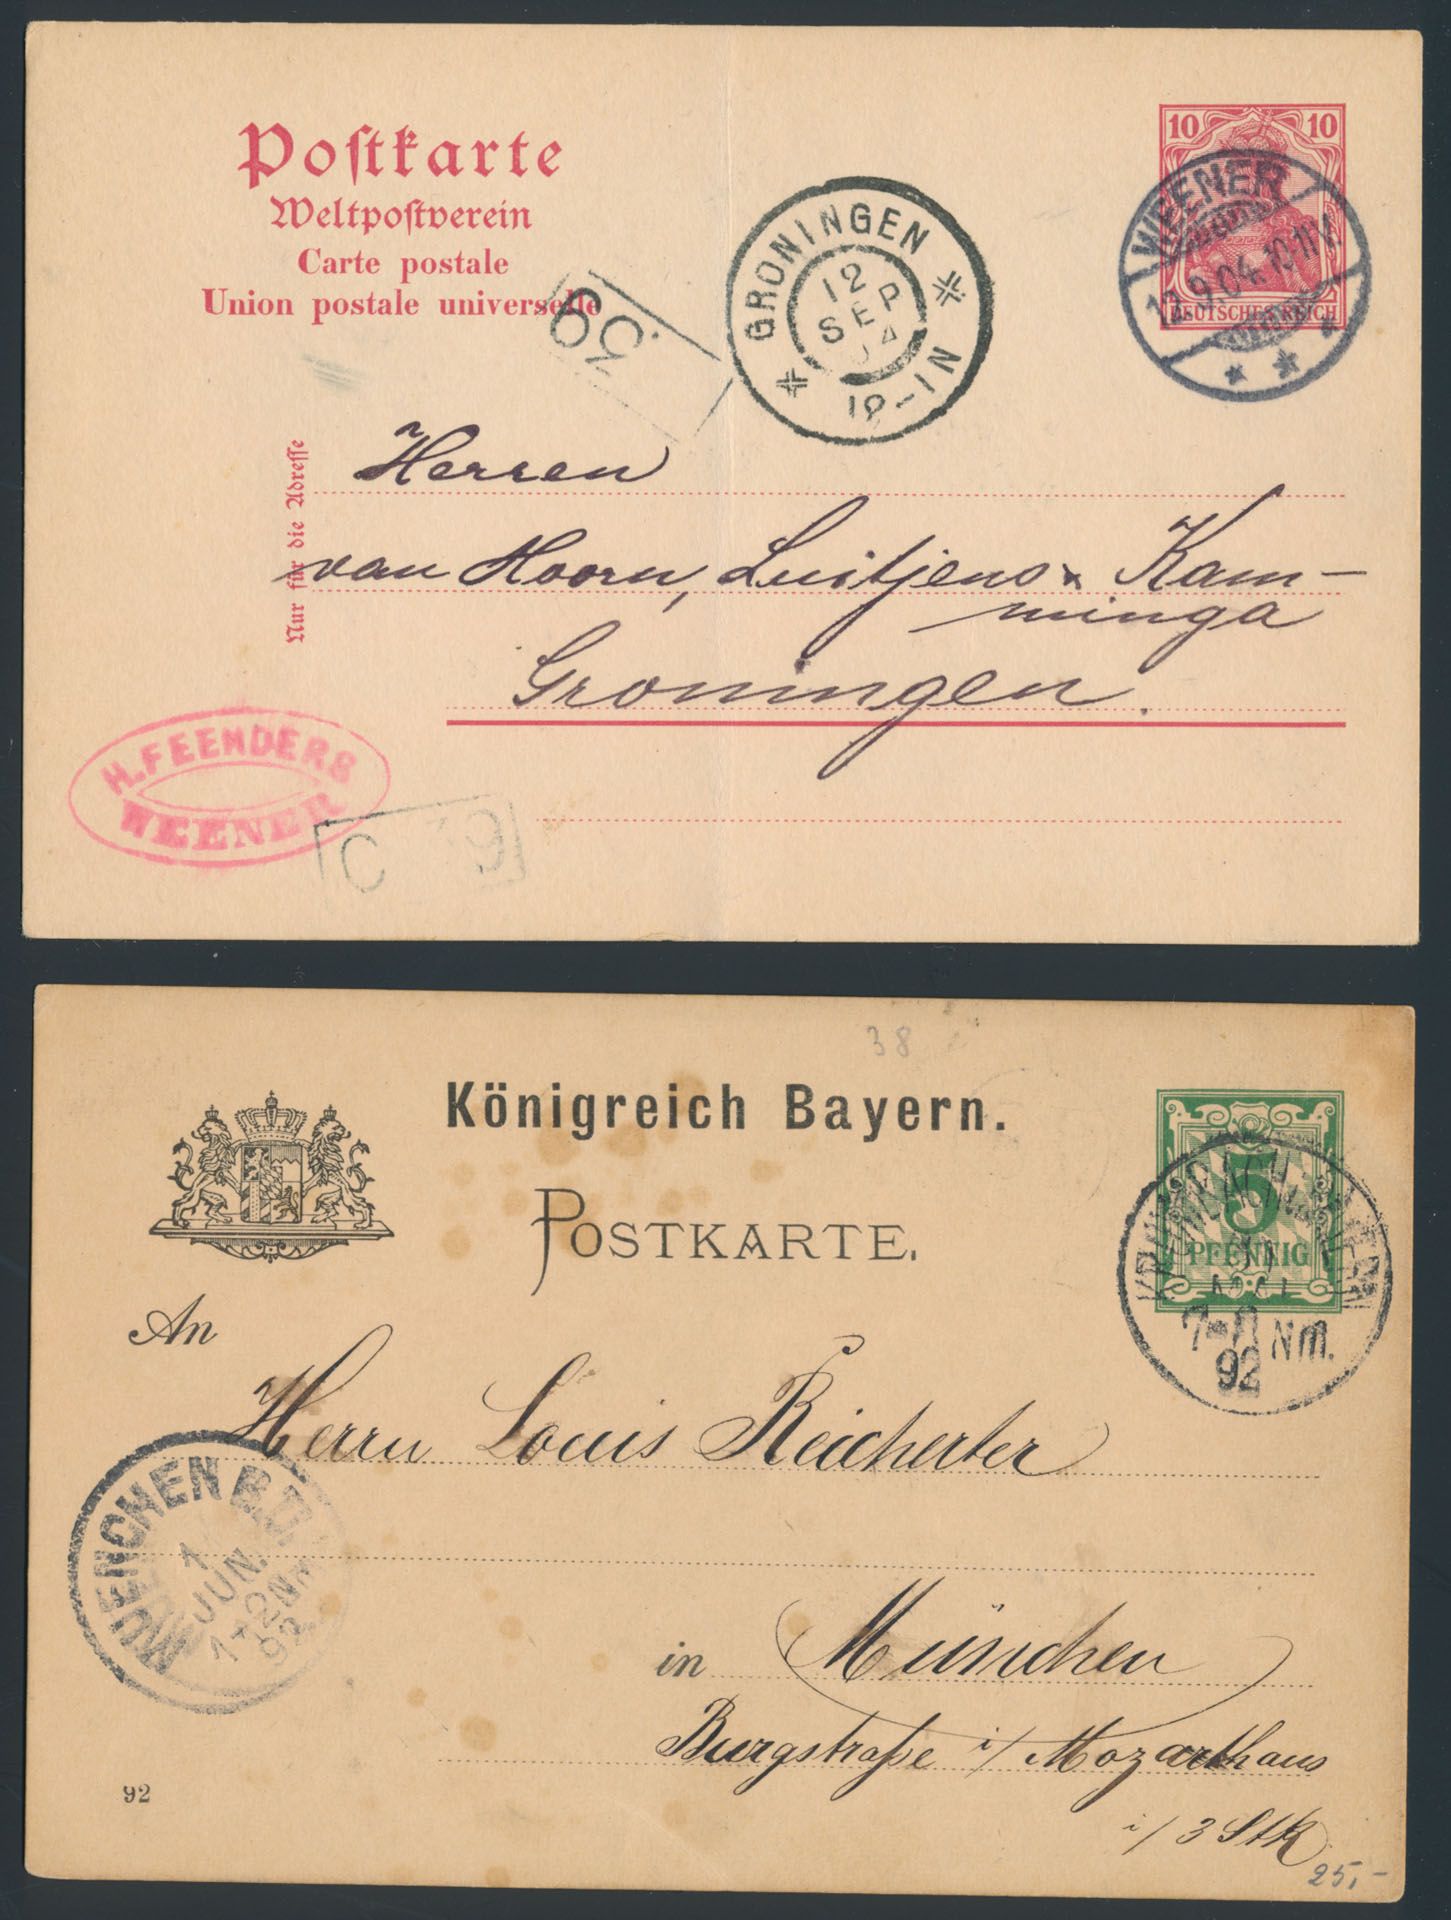 Postkarte
Weltpostverein
Carte postale
Union postale universelle
10 10
DEUTSCHES REICH
WEENER
12.9.04.10-11V.
* * *
GRONINGEN
12 SEP 04
12-1N
39
Nur für die Adresse
Herren
van Hoorn, Luitjens & Kam-
minga
Groningen.
H. FEENDERS
WEENER
C 39
38
Königreich Bayern.
POSTKARTE.
5
PFENNIG
7-8 Nm.
92
An
Herrn Louis Reicherter
MUENCHEN B.P.
1
JUN.
1-2 NM
92
in München
Burgstraße i/ Mozarthaus
i/ 3 Stk
92
25,-